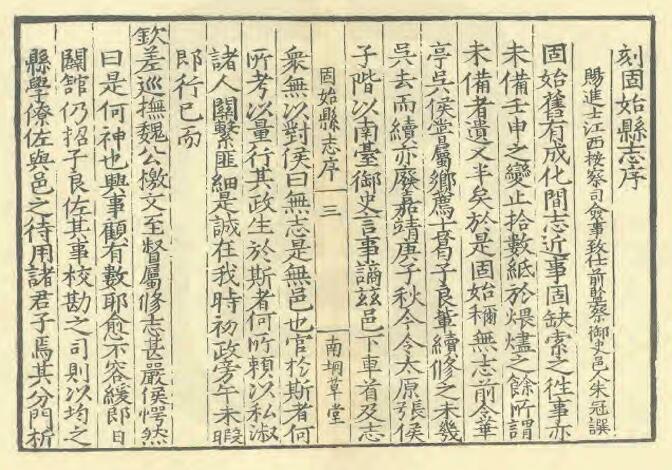 刻固始縣志序
賜進士江西按察司僉事致仕前監察御史邑人朱冠譔
固始舊有成化間志近事固缺索之徃事亦
未備壬申之變止拾數紙於煨燼之餘所謂
未備者遺又半矣於是固始穪無志前令華
亭吳侯嘗屬鄉薦士子良輩續修之未幾
吳去而續亦廢嘉靖庚子秋今令太原張侯
子階以南臺御史言事謫兹邑下車首及志
固始縣志序 三 南垌草堂
衆無以對侯曰無志是無邑也官於斯者何
所考以量行其政生於斯者何所賴以私淑
諸人關繫匪細是誠在我時初政旁午未暇
即行已而
欽差巡撫魏公檄文至督屬修志甚嚴侯愕然
曰是何神也興事顧有數耶愈不容緩即日
闢舘仍招子良佐其事校勘之司則以均之
縣學僚佐與邑之待用諸君子焉其分門析